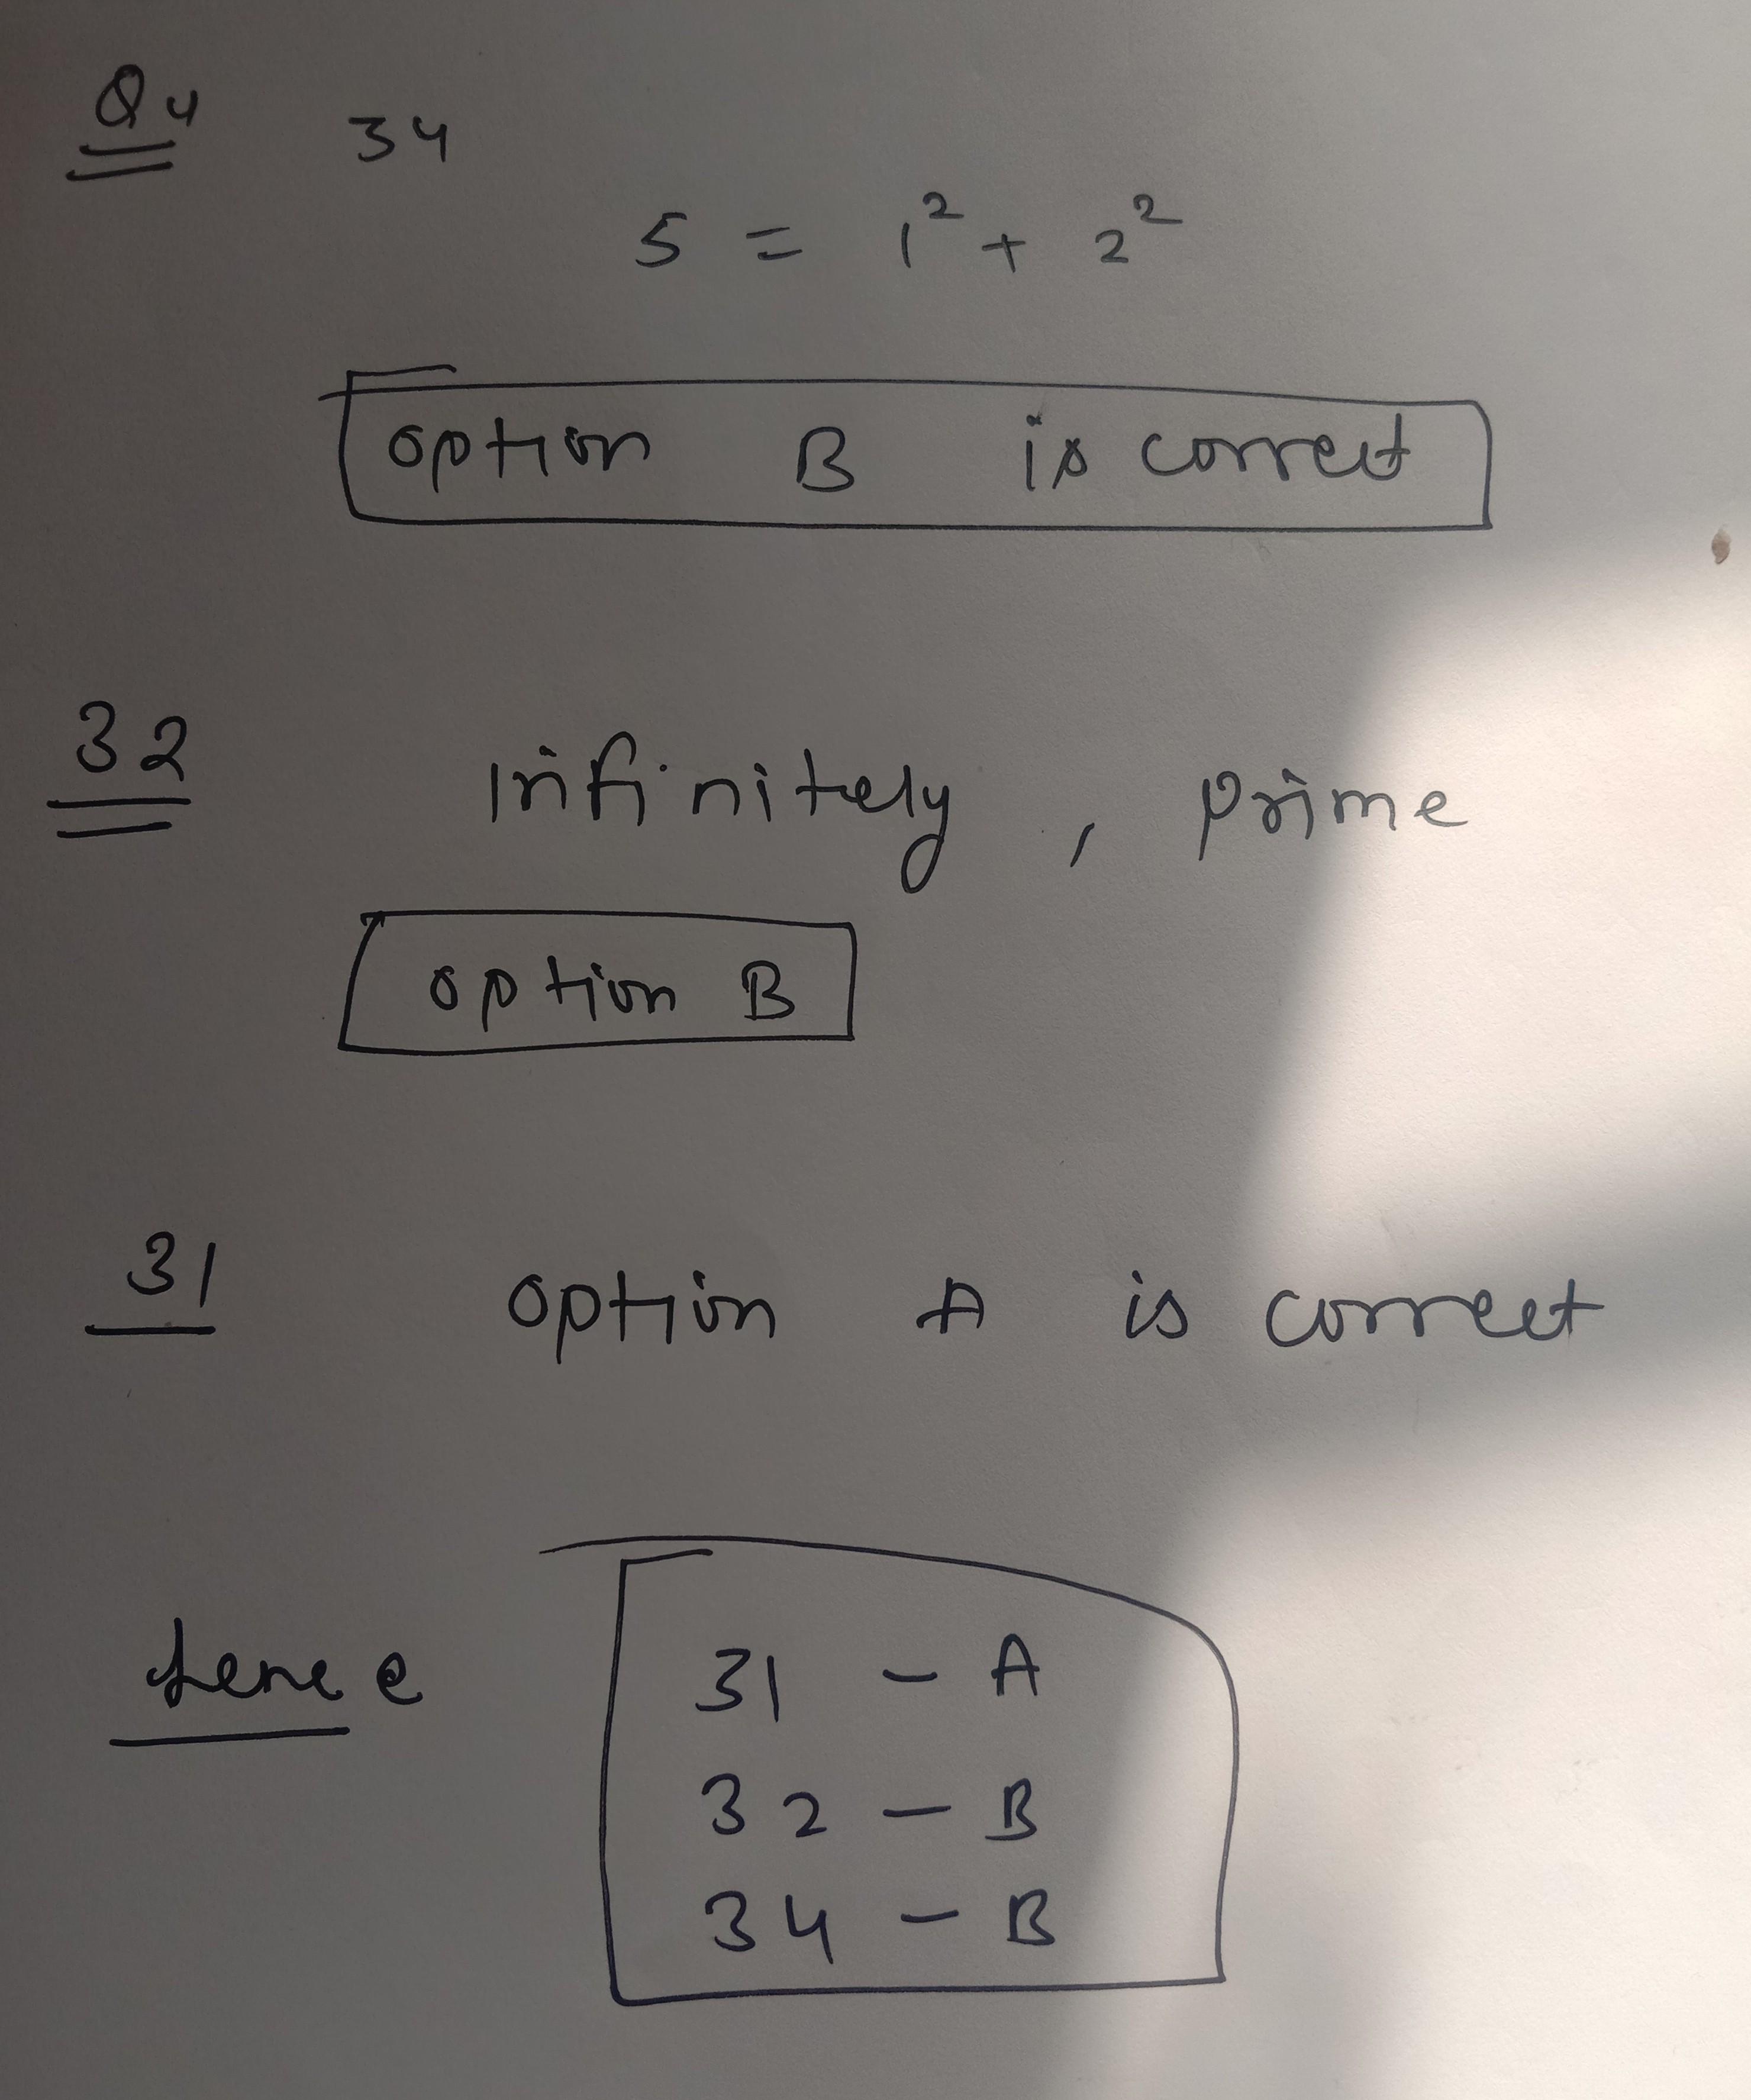 Q4 34
5 = 1² + 2²
option B is correct
32 infinitely, prime
option B
31 option A is correct
hence
31 - A
32 - B
34 - B